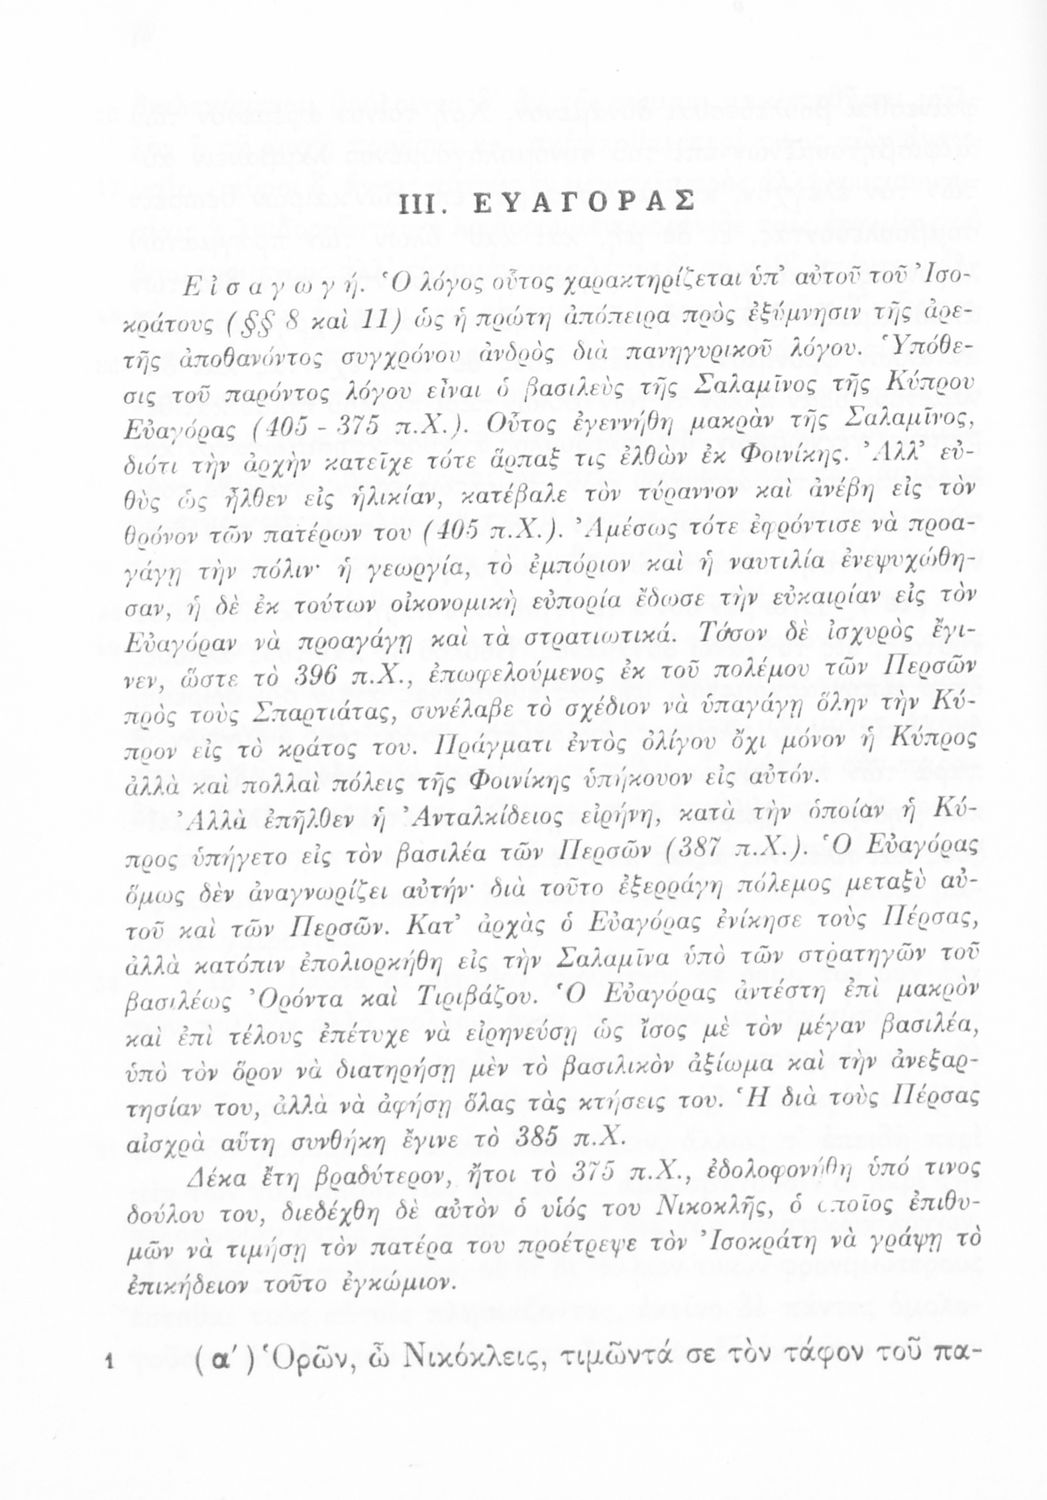 III. ΕΥΑΓΟΡΑΣ
Εἰσαγωγή. Ὁ λόγος οὗτος χαρακτηρίζεται ὑπ’ αὐτοῦ τοῦ Ἰσο-
κράτους (§§ 8 καὶ 11) ὡς ἡ πρώτη ἀπόπειρα πρὸς ἐξύμνησιν τῆς ἀρε-
τῆς ἀποθανόντος συγχρόνου ἀνδρὸς διὰ πανηγυρικοῦ λόγου. Ὑπόθε-
σις τοῦ παρόντος λόγου εἶναι ὁ βασιλεὺς τῆς Σαλαμῖνος τῆς Κύπρου
Εὐαγόρας (405 - 375 π.Χ.). Οὗτος ἐγεννήθη μακρὰν τῆς Σαλαμῖνος,
διότι τὴν ἀρχὴν κατεῖχε τότε ἅρπαξ τις ἐλθὼν ἐκ Φοινίκης. Ἀλλ’ εὐ-
θὺς ὡς ἦλθεν εἰς ἡλικίαν, κατέβαλε τὸν τύραννον καὶ ἀνέβη εἰς τὸν
θρόνον τῶν πατέρων του (405 π.Χ.). Ἀμέσως τότε ἐφρόντισε νὰ προα-
γάγῃ τὴν πόλιν· ἡ γεωργία, τὸ ἐμπόριον καὶ ἡ ναυτιλία ἐνεψυχώθη-
σαν, ἡ δὲ ἐκ τούτων οἰκονομικὴ εὐπορία ἔδωσε τὴν εὐκαιρίαν εἰς τὸν
Εὐαγόραν νὰ προαγάγῃ καὶ τὰ στρατιωτικά. Τόσον δὲ ἰσχυρὸς ἔγι-
νεν, ὥστε τὸ 396 π.Χ., ἐπωφελούμενος ἐκ τοῦ πολέμου τῶν Περσῶν
πρὸς τοὺς Σπαρτιάτας, συνέλαβε τὸ σχέδιον νὰ ὑπαγάγῃ ὅλην τὴν Κύ-
προν εἰς τὸ κράτος του. Πράγματι ἐντὸς ὀλίγου ὄχι μόνον ἡ Κύπρος
ἀλλὰ καὶ πολλαὶ πόλεις τῆς Φοινίκης ὑπήκουον εἰς αὐτόν.
Ἀλλὰ ἐπῆλθεν ἡ Ἀνταλκίδειος εἰρήνη, κατὰ τὴν ὁποίαν ἡ Κύ-
προς ὑπήγετο εἰς τὸν βασιλέα τῶν Περσῶν (387 π.Χ.). Ὁ Εὐαγόρας
ὅμως δὲν ἀναγνωρίζει αὐτήν· διὰ τοῦτο ἐξερράγη πόλεμος μεταξὺ αὐ-
τοῦ καὶ τῶν Περσῶν. Κατ’ ἀρχὰς ὁ Εὐαγόρας ἐνίκησε τοὺς Πέρσας,
ἀλλὰ κατόπιν ἐπολιορκήθη εἰς τὴν Σαλαμῖνα ὑπὸ τῶν στρατηγῶν τοῦ
βασιλέως Ὀρόντα καὶ Τιριβάζου. Ὁ Εὐαγόρας ἀντέστη ἐπὶ μακρὸν
καὶ ἐπὶ τέλους ἐπέτυχε νὰ εἰρηνεύσῃ ὡς ἴσος μὲ τὸν μέγαν βασιλέα,
ὑπὸ τὸν ὅρον νὰ διατηρήσῃ μὲν τὸ βασιλικὸν ἀξίωμα καὶ τὴν ἀνεξαρ-
τησίαν του, ἀλλὰ νὰ ἀφήσῃ ὅλας τὰς κτήσεις του. Ἡ διὰ τοὺς Πέρσας
αἰσχρὰ αὕτη συνθήκη ἔγινε τὸ 385 π.Χ.
Δέκα ἔτη βραδύτερον, ἤτοι τὸ 375 π.Χ., ἐδολοφονήθη ὑπό τινος
δούλου του, διεδέχθη δὲ αὐτὸν ὁ υἱός του Νικοκλῆς, ὁ ὁποῖος ἐπιθυ-
μῶν νὰ τιμήσῃ τὸν πατέρα του προέτρεψε τὸν Ἰσοκράτη νὰ γράψῃ τὸ
ἐπικήδειον τοῦτο ἐγκώμιον.
1 (α′) Ὁρῶν, ὦ Νικόκλεις, τιμῶντά σε τὸν τάφον τοῦ πα-